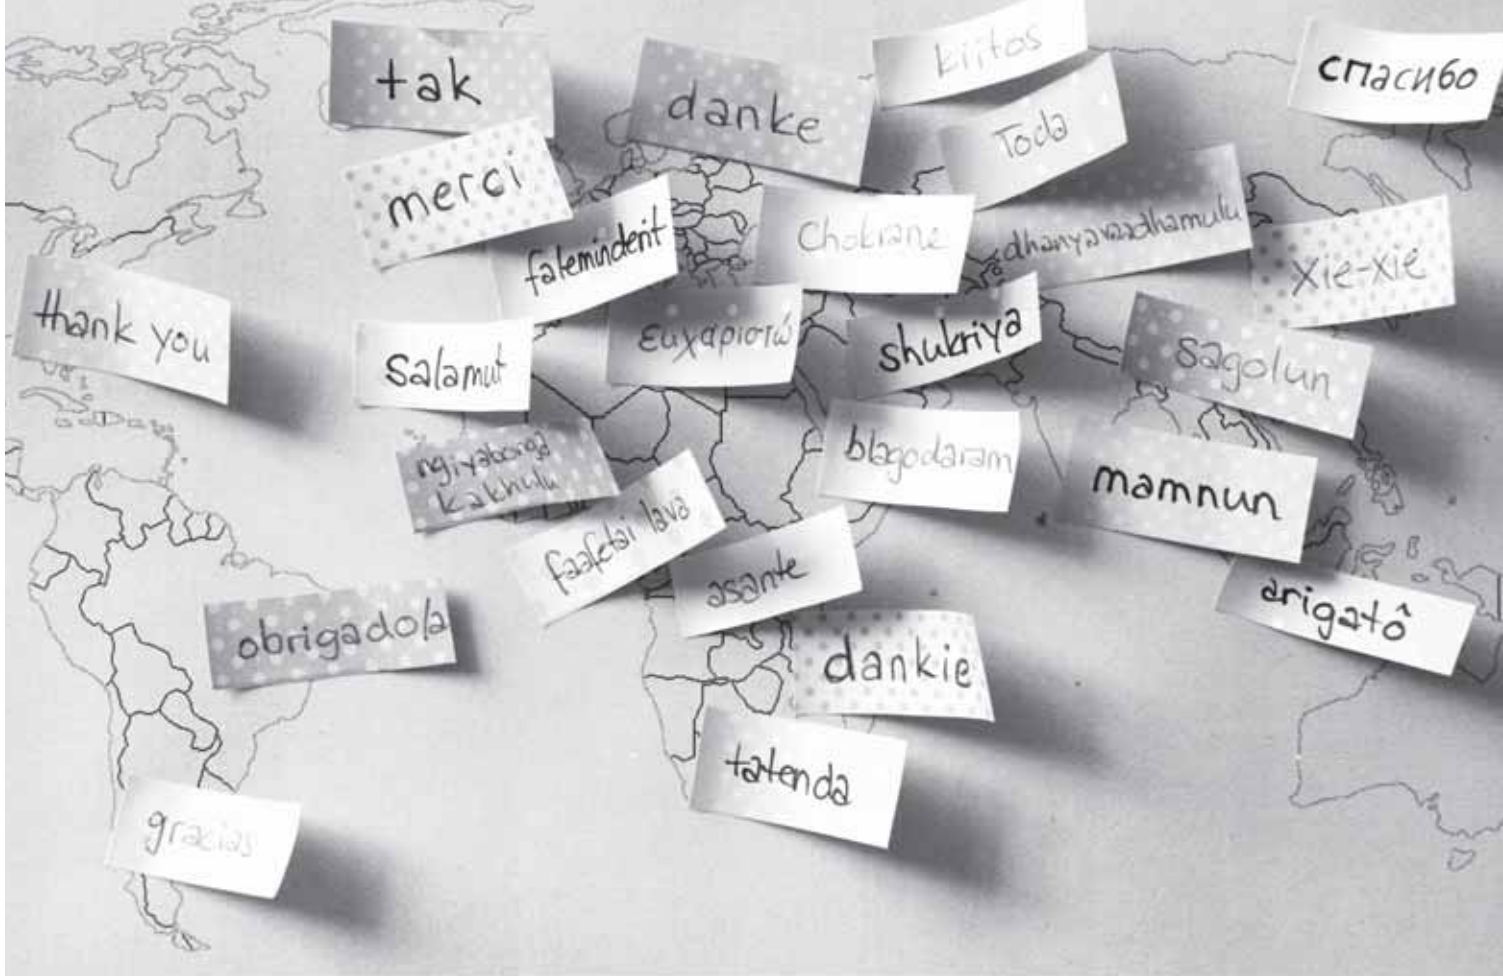 tak
danke
kiitos
спасибо
merci
Toda
falemindent
Chokrane
dhanyavaadhamulu
xie-xie
thank you
salamut
ευχαριστώ
shukriya
sagolun
ngiyabonga
kakhulu
blagodaram
mamnun
faafetai lava
asante
arigatô
obrigado/a
dankie
tatenda
gracias